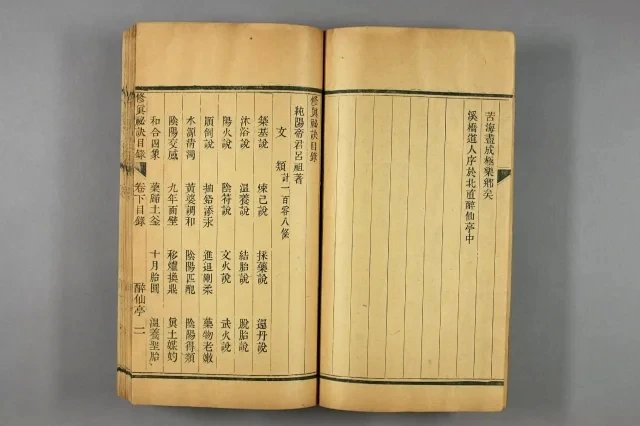 苦海盡成極樂鄉矣
溪橋道人序於北直醉仙亭中
修眞祕訣目錄
純陽帝君呂祖著
文類計一百零八條
築基說 煉己說 採藥說 還丹說
沐浴說 溫養說 結胎說 脫胎說
陽火說 陰符說 文火說 武火說
順倒說 抽鉛添汞 進退剛柔 藥物老嫩
水源清濁 黃婆調和 陰陽匹配 陰陽得類
陰陽交感 九年面壁 移爐換鼎 眞土媒妁
和合四象 葉歸土釜 十月胎圓 溫養聖胎
修眞祕訣目錄 卷下目錄 醉仙亭 二